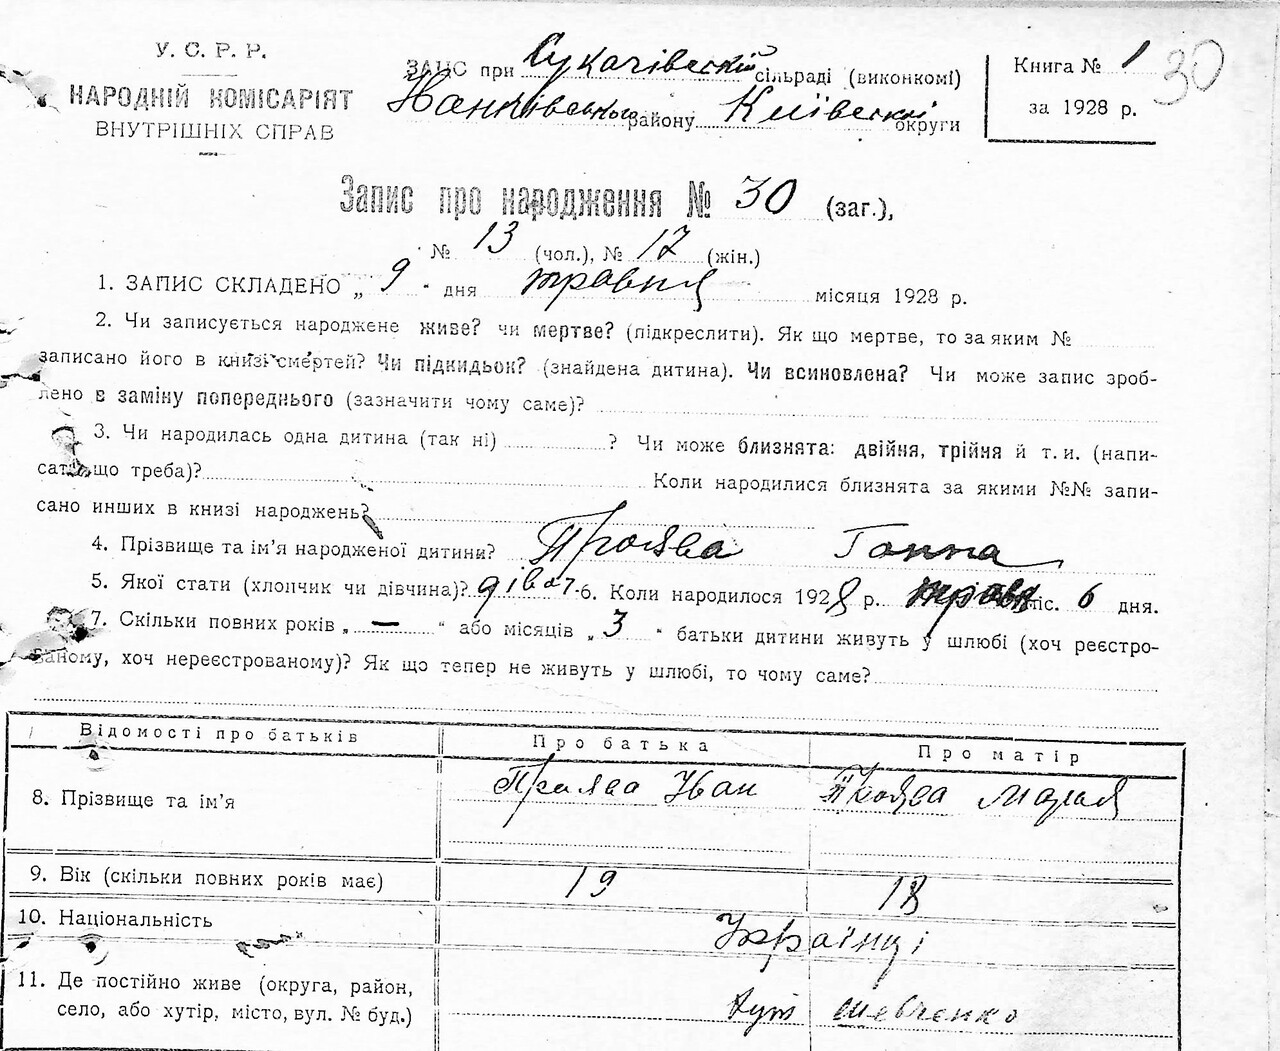 У. С. Р. Р.
НАРОДНІЙ КОМІСАРІЯТ
ВНУТРІШНІХ СПРАВ
ЗАПИС при Сукачівскій сільраді (виконкомі)
району Київскої округи
Книга № 1
за 1928 р.
30
Запис про народження № 30 (заг.),
№ 13 (чол.), № 17 (жін.)
1. ЗАПИС СКЛАДЕНО „ 9 “ дня травня місяця 1928 р.
2. Чи записується народжене живе? чи мертве? (підкреслити). Як що мертве, то за яким №
записано його в книзі смертей? Чи підкидьок? (знайдена дитина). Чи всиновлена? Чи може запис зроб-
лено в заміну попереднього (зазначити чому саме)?
3. Чи народилась одна дитина (так ні) ? Чи може близнята: двійня, трійня й т. и. (напи-
сати що треба)? Коли народилися близнята за якими №№ запи-
сано инших в книзі народжень?
4. Прізвище та ім’я народженої дитини? Проява Ганна
5. Якої стати (хлопчик чи дівчина)? дівч. 6. Коли народилося 1928 р. травн міс. 6 дня.
7. Скільки повних років „ — “ або місяців „ 3 “ батьки дитини живуть у шлюбі (хоч реєстро-
ваному, хоч нереєстрованому)? Як що тепер не живуть у шлюбі, то чому саме?
Відомості про батьків Про батька Про матір
8. Прізвище та ім’я Проява Іван Проява Марія
9. Вік (скільки повних років має) 19 18
10. Національність Українці
11. Де постійно живе (округа, район,
село, або хутір, місто, вул. № буд.) хут Шевченко